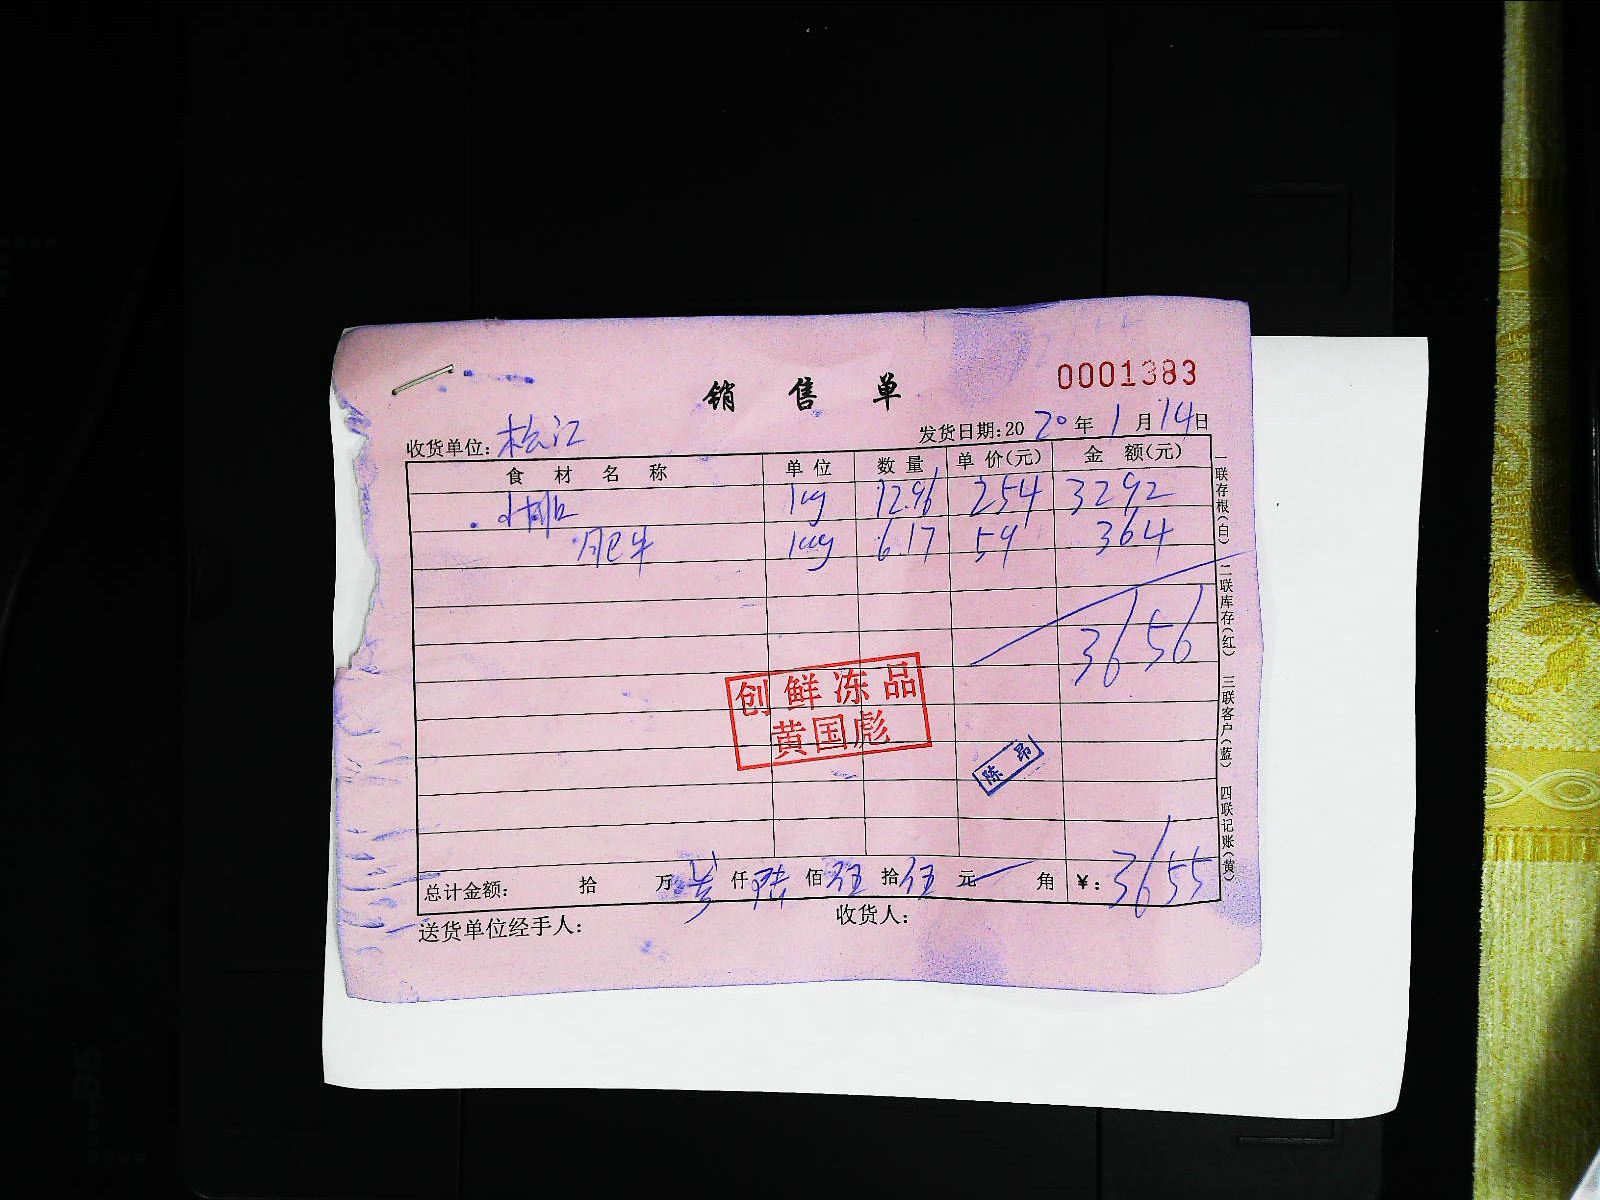 销售单
0001383
收货单位: 松江 发货日期:2020年1月14日
食材名称 单位 数量 单价(元) 金额(元)
kg 12.96 254 3292
肥牛 kg 6.17 59 364
3656
创鲜冻品
黄国彪
陈昂
总计金额: 拾 万 叁 仟 陆 佰 伍 拾 伍 元 角 ¥: 3655
送货单位经手人: 收货人:
一联存根(白) 二联库存(红) 三联客户(蓝) 四联记账(黄)